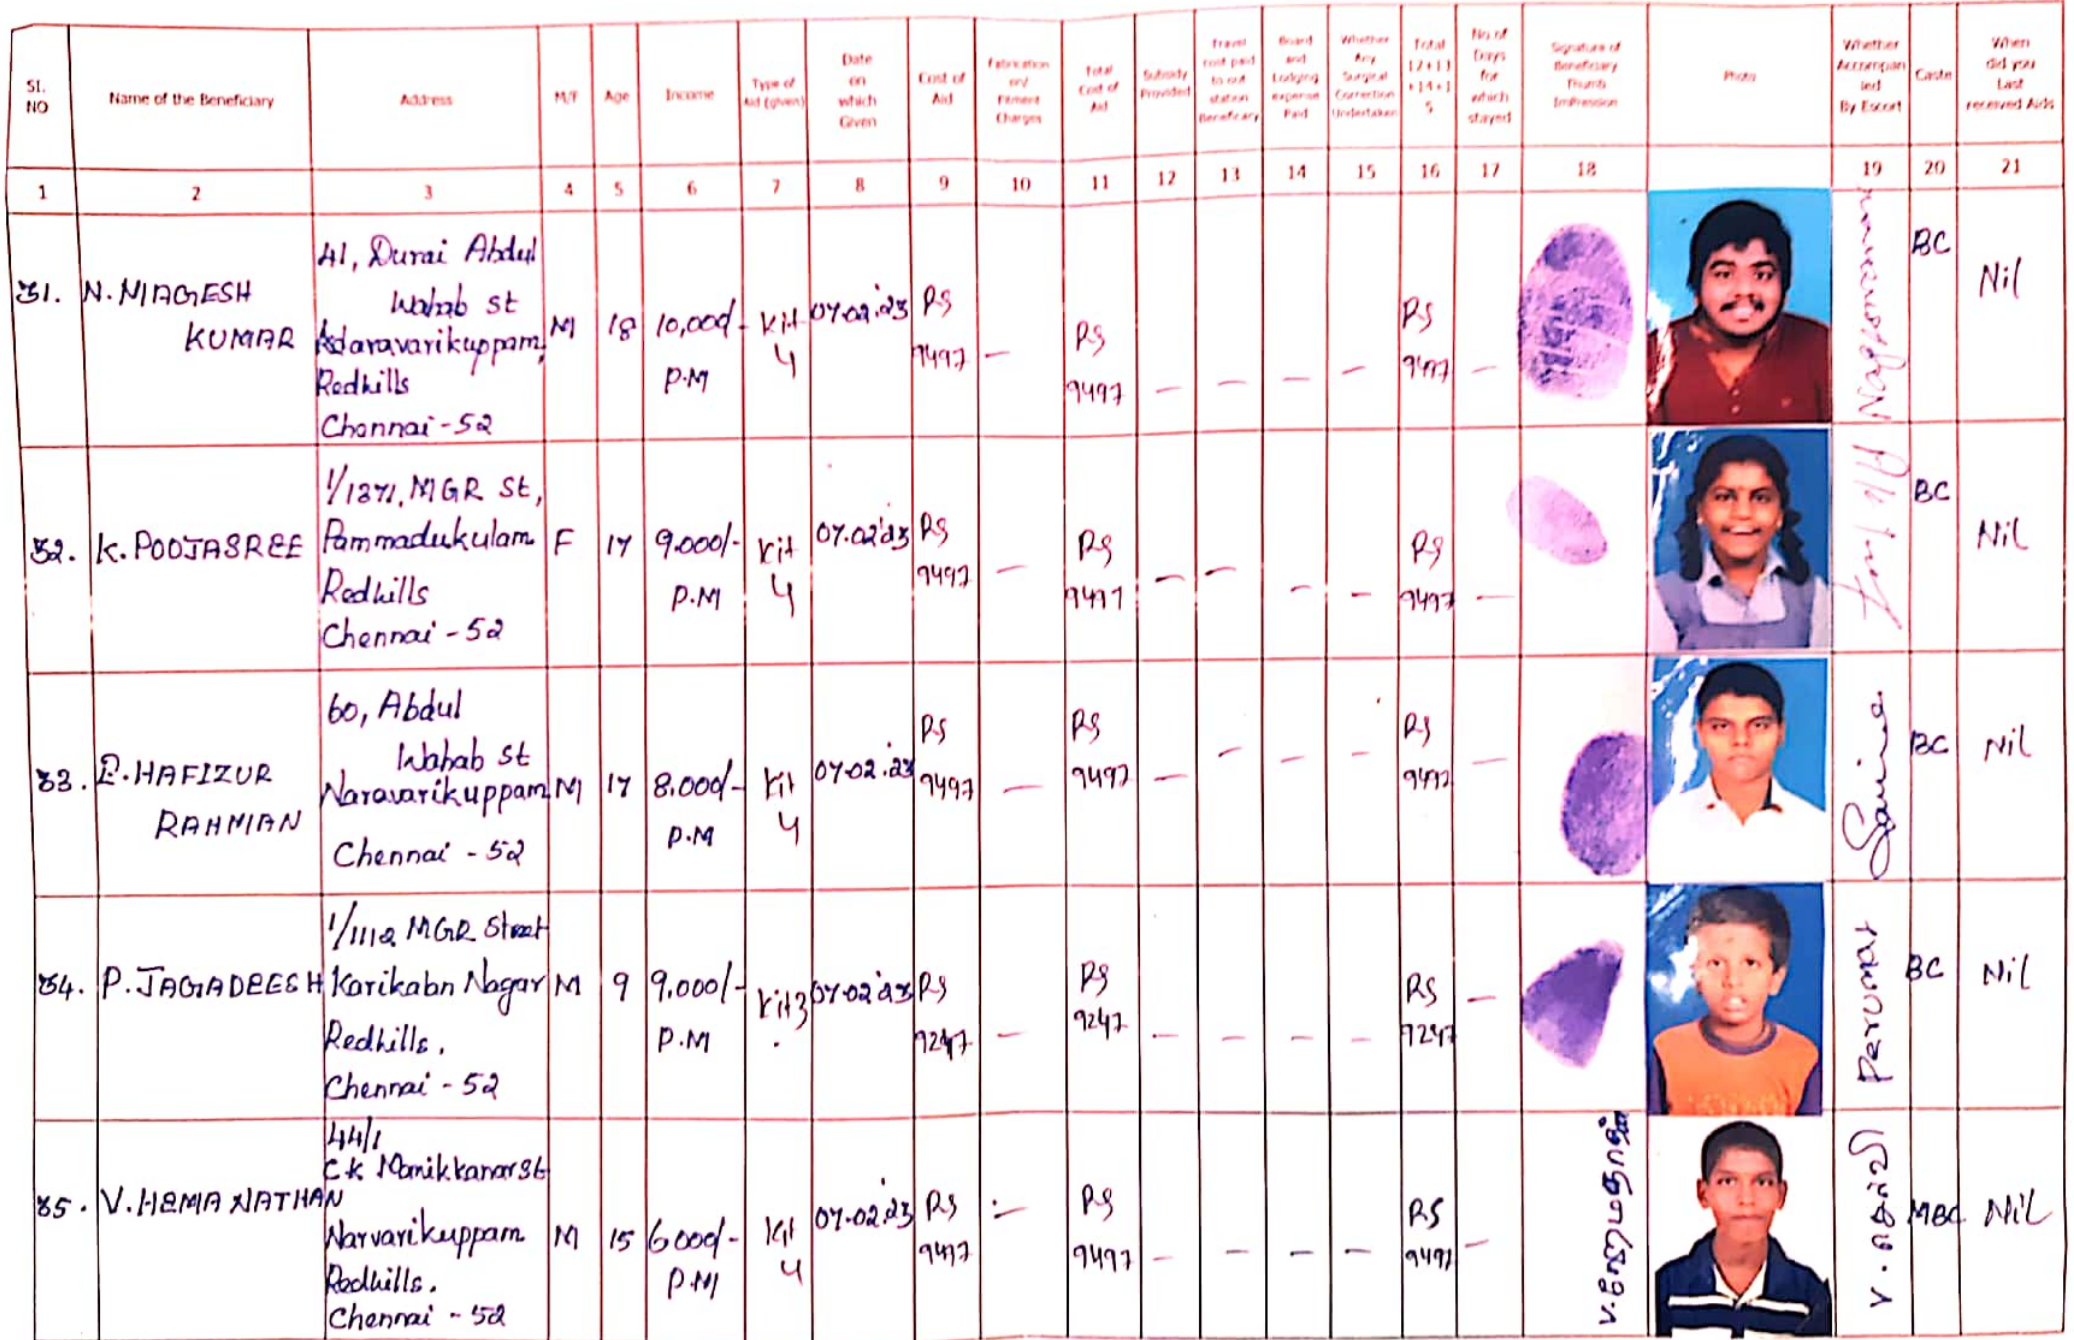 Sl. NO
Name of the Beneficiary
Address
M/F
Age
Income
Type of Aid (given)
Date on which Given
Cost of Aid
Fabrication on/ Fitment Charges
Total Cost of Aid
Subsidy Provided
Travel cost paid to out station Beneficiary
Board and Lodging expense Paid
Whether Any Surgical Correction Undertaken
Total 12+13+14+15
No of Days for which stayed
Signature of Beneficiary Thumb Impression
Photo
Whether Accompanied By Escort
Caste
When did you Last received Aids
1 2 3 4 5 6 7 8 9 10 11 12 13 14 15 16 17 18 19 20 21
31. N. NIAGESH
KUMAR
41, Durai Abdul
Wahab st
Redhills
Chennai - 52
M 18 10,000/-
P.M
Kit
4
07.02.23
RS
9497
—
RS
9497
— — — —
RS
9497
—
BC
Nil
32. K. POOJASREE
1/1371, MGR St,
Pammadukulam
Redhills
Chennai - 52
F 17 9.000/-
P.M
Kit
4
07.02.23
RS
9497
—
RS
9497
— — — —
RS
9497
—
BC
Nil
33. HAFIZUR
RAHMAN
60, Abdul
Wahab st
Naravarikuppam
Chennai - 52
M 17 8.000/-
P.M
Kit
4
07.02.23
RS
9497
—
RS
9497
— — — —
RS
9497
—
BC
Nil
34. P. JAGADEESH
1/1112 MGR Street
Nagar
Redhills.
Chennai - 52
M 9 9.000/-
P.M
Kit 3
07.02.23
RS
9247
—
RS
9247
— — — —
RS
9247
—
Perumar
BC
Nil
35. V. HEMA NATHAN
44/1
C K Manikkanar St
Narvarikuppam
Redhills.
Chennai - 52
M 15 6000/-
P.M
Kit
4
07.02.23
RS
9497
—
RS
9497
— — — —
RS
9497
—
V. ஹேமநாதன்
V. செல்வி
MBC
Nil